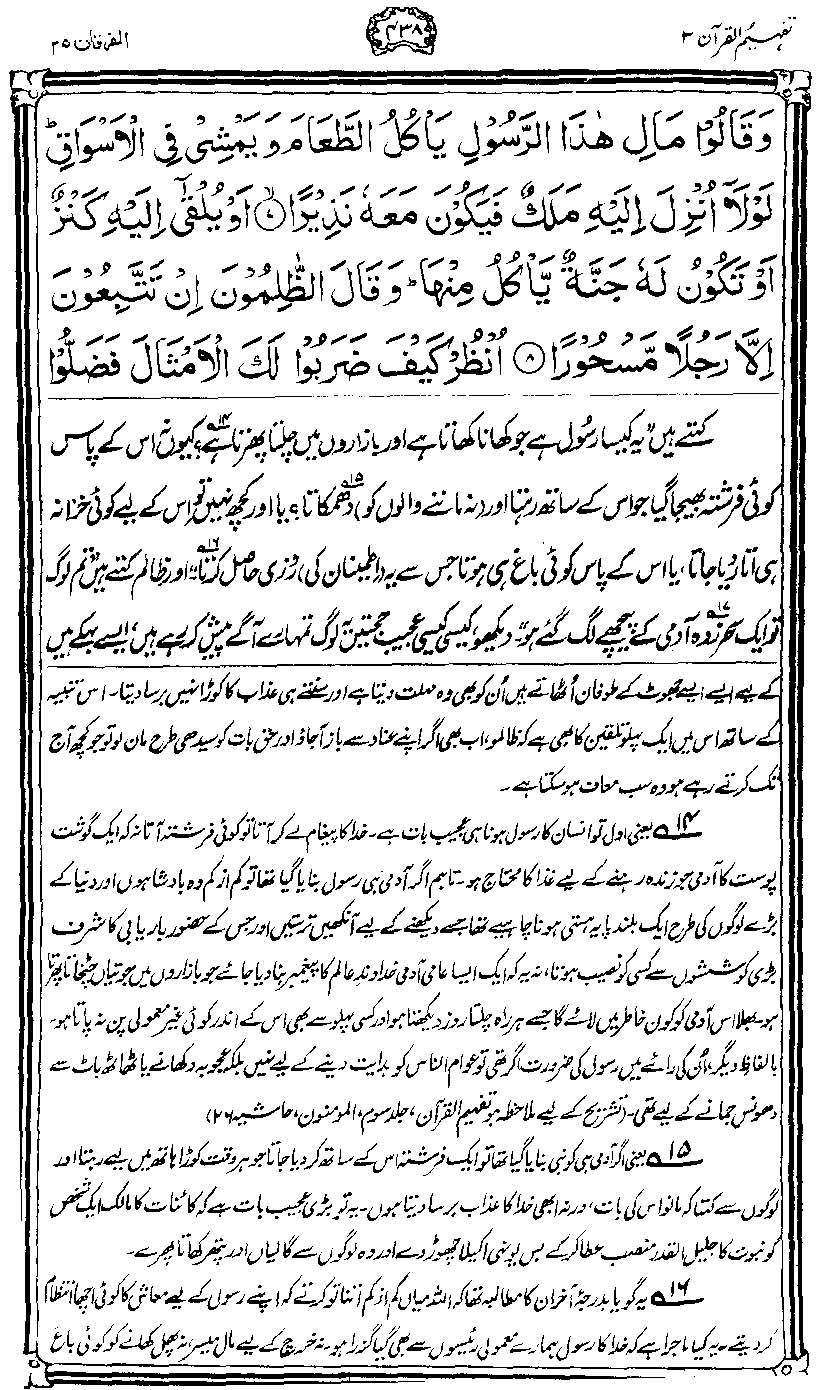 تفہیم القرآن ۳
۴۳۸
الفرقان ۲۵
وَقَالُوْا مَالِ هٰذَا الرَّسُوْلِ يَاْكُلُ الطَّعَامَ وَيَمْشِيْ فِي الْاَسْوَاقِ ؕ
لَوْلَاۤ اُنْزِلَ اِلَيْهِ مَلَكٌ فَيَكُوْنَ مَعَهٗ نَذِيْرًا ۙ۷ اَوْ يُلْقٰۤى اِلَيْهِ كَنْزٌ
اَوْ تَكُوْنُ لَهٗ جَنَّةٌ يَّاْكُلُ مِنْهَا ؕ وَقَالَ الظّٰلِمُوْنَ اِنْ تَتَّبِعُوْنَ
اِلَّا رَجُلًا مَّسْحُوْرًا ۸ اُنْظُرْ كَيْفَ ضَرَبُوْا لَكَ الْاَمْثَالَ فَضَلُّوْا
کہتے ہیں ”یہ کیسا رسُول ہے جو کھانا کھاتا ہے اور بازاروں میں چلتا پھرتا ہے؟۱۴ کیوں نہ اس کے پاس
کوئی فرشتہ بھیجا گیا جو اس کے ساتھ رہتا اور (نہ ماننے والوں کو) دھمکاتا؟۱۵ یا اور کچھ نہیں تو اِس کے لیے کوئی خزانہ
ہی اُتار دیا جاتا، یا اس کے پاس کوئی باغ ہی ہوتا جس سے یہ (اطمینان کی) روزی حاصل کرتا۔“۱۶ اور ظالم کہتے ہیں ”تم لوگ
تو ایک سحر زدہ آدمی۱۷ کے پیچھے لگ گئے ہو“۔ دیکھو، کیسی کیسی عجیب حجتیں یہ لوگ تمہارے آگے پیش کر رہے ہیں، ایسے بہکے ہیں
کے لیے ایسے ایسے جھوٹ کے طوفان اُٹھاتے ہیں اُن کو بھی وہ مہلت دیتا ہے اور سنتے ہی عذاب کا کوڑا نہیں برسا دیتا۔ اس تنبیہ
کے ساتھ اس میں ایک پہلو تلقین کا بھی ہے کہ ظالمو، اب بھی اگر اپنے عناد سے باز آجاؤ اور حق بات کو سیدھی طرح مان لو تو جو کچھ آج
تک کرتے رہے ہو وہ سب معاف ہو سکتا ہے۔
۱۴؂ یعنی اول تو انسان کا رسول ہونا ہی عجیب بات ہے۔ خدا کا پیغام لے کر آتا تو کوئی فرشتہ آتا نہ کہ ایک گوشت
پوست کا آدمی جو زندہ رہنے کے لیے غذا کا محتاج ہو۔ تاہم اگر آدمی ہی رسول بنایا گیا تھا تو کم از کم وہ بادشاہوں اور دنیا کے
بڑے لوگوں کی طرح ایک بلند پایہ ہستی ہونا چاہیے تھا جسے دیکھنے کے لیے آنکھیں ترستیں اور جس کے حضور باریابی کا شرف
بڑی کوششوں سے کسی کو نصیب ہوتا، نہ یہ کہ ایک ایسا عامی آدمی خداوندِ عالم کا پیغمبر بنا دیا جائے جو بازاروں میں جوتیاں چٹخاتا پھرتا
ہو۔ بھلا اس آدمی کو کون خاطر میں لائے گا جسے ہر راہ چلتا روز دیکھتا ہو اور کسی پہلو سے بھی اس کے اندر کوئی غیر معمولی پن نہ پاتا ہو۔
بالفاظِ دیگر، اُن کی رائے میں رسول کی ضرورت اگر تھی تو عوام الناس کو ہدایت دینے کے لیے نہیں بلکہ عجوبہ دکھانے یا ٹھاٹھ باٹ سے
دھونس جمانے کے لیے تھی۔ (تشریح کے لیے ملاحظہ ہو تفہیم القرآن، جلد سوم، المومنون، حاشیہ ۲۶)
۱۵؂ یعنی اگر آدمی ہی کو نبی بنایا گیا تھا تو ایک فرشتہ اس کے ساتھ کر دیا جاتا جو ہر وقت کوڑا ہاتھ میں لیے رہتا اور
لوگوں سے کہتا کہ مانو اس کی بات، ورنہ ابھی خدا کا عذاب برسا دیتا ہوں۔ یہ تو بڑی عجیب بات ہے کہ کائنات کا مالک ایک شخص
کو نبوت کا جلیل القدر منصب عطا کر کے بس یونہی اکیلا چھوڑ دے اور وہ لوگوں سے گالیاں اور پتھر کھاتا پھرے۔
۱۶؂ یہ گویا بدرجۂ آخر ان کا مطالبہ تھا کہ اللہ میاں کم از کم اتنا تو کرتے کہ اپنے رسول کے لیے معاش کا کوئی اچھا انتظام
کر دیتے۔ یہ کیا ماجرا ہے کہ خدا کا رسول ہمارے معمولی رئیسوں سے بھی گیا گزرا ہو۔ نہ خرچ کے لیے مال میسر، نہ پھل کھانے کو کوئی باغ